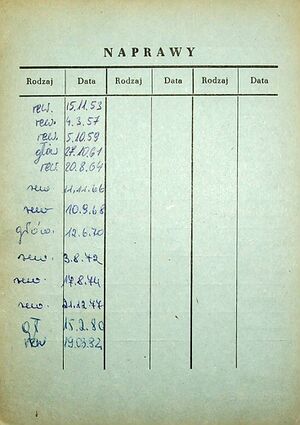 NAPRAWY
Rodzaj Data Rodzaj Data Rodzaj Data
rew. 15.11.53
rew. 4.3.57
rew. 5.10.59
głów 27.10.61
rew. 20.8.64
rew 11.11.66
rew 10.9.68
głów. 12.6.70
rew. 3.8.72
rew. 17.8.74
rew. 21.12.77
gł 15.2.80
rew 19.03.82